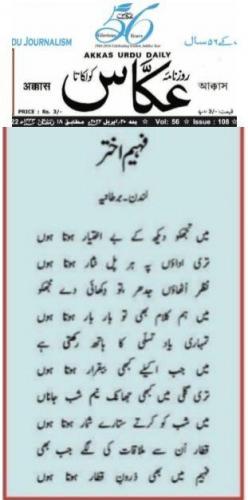 DU JOURNALISM
56 Years
کے ۵۶ سال
AKKAS URDU DAILY
अक्कास
روزنامہ عکاس کولکاتا
আক্কাস
PRICE : Rs. 3/-
Vol: 56
Issue : 108
فہیم اختر
لندن۔برطانیہ
میں تجھکو دیکھ کے بے اختیار ہوتا ہوں
تری اداؤں پہ ہر پل نثار ہوتا ہوں
نظر اٹھاؤں جدھر، تو دکھائی دے مجھکو
میں ہم کلام بھی تو بار بار ہوتا ہوں
تمہاری یاد تسلی کا ہاتھ رکھتی ہے
میں جب اکیلے کبھی بیقرار ہوتا ہوں
تری گلی میں کبھی جھانک نیم شب جاناں
میں شب کو کرتے ستارے شمار ہوتا ہوں
قطار اُن سے ملاقات کی لگے جب بھی
فہیم میں بھی درونِ قطار ہوتا ہوں